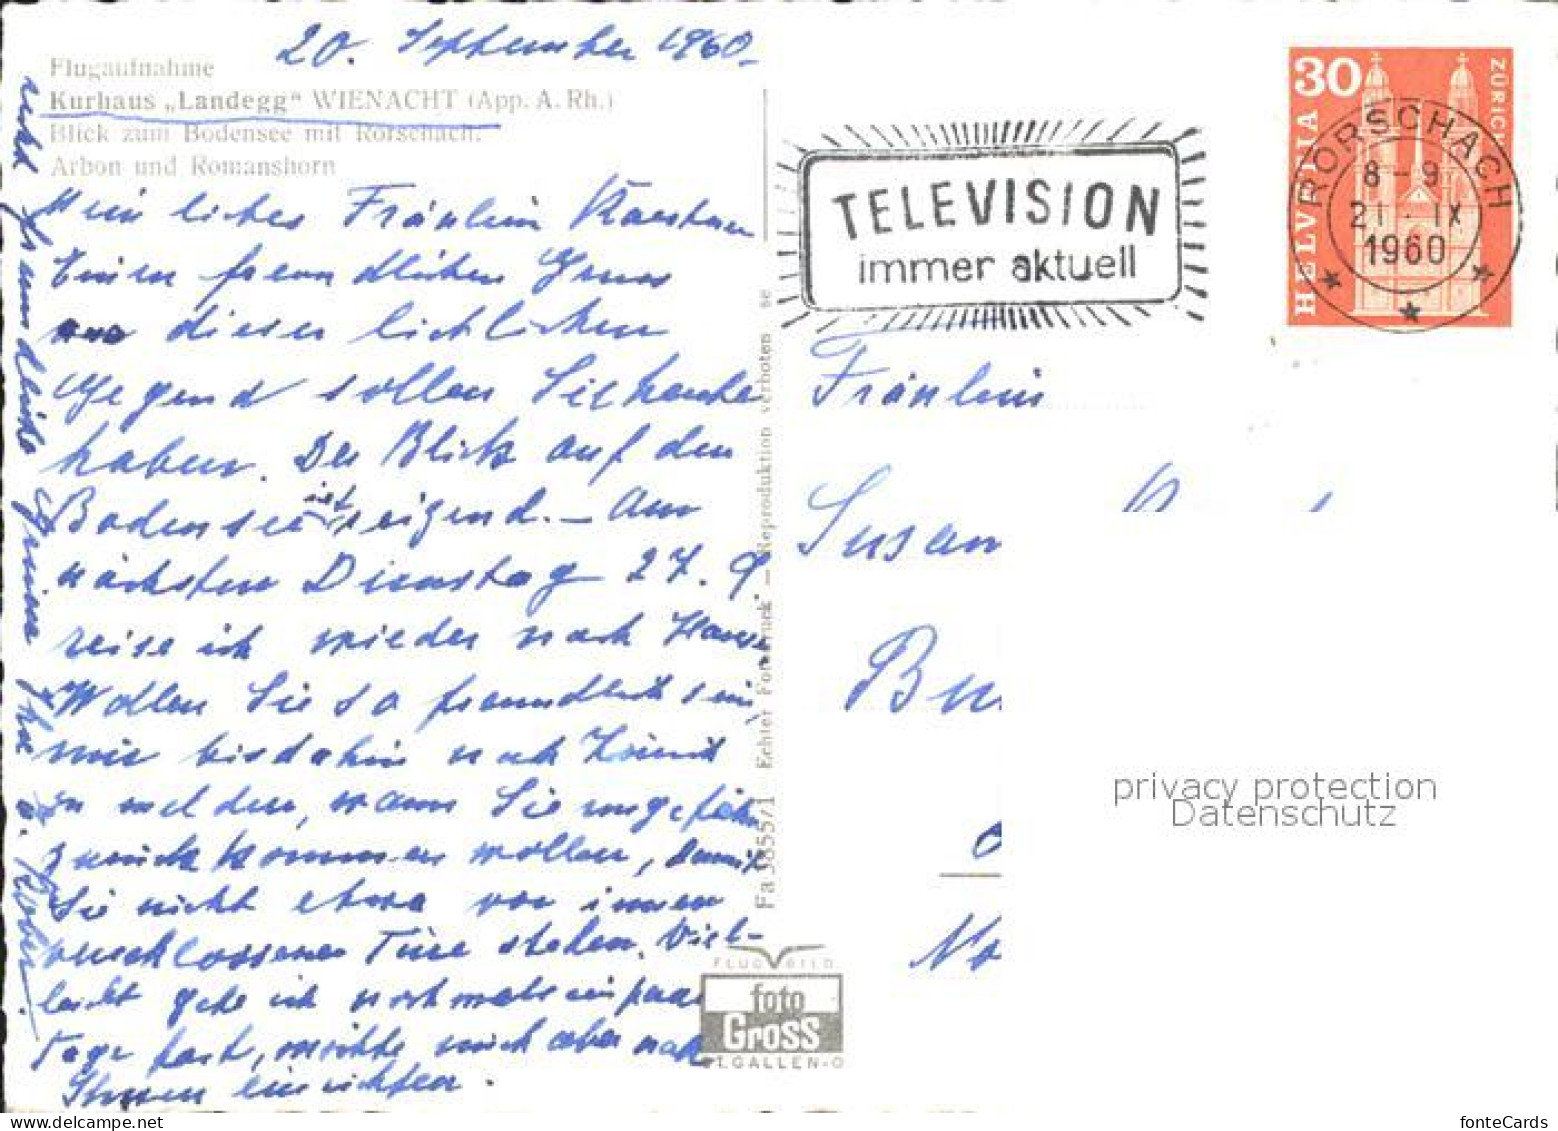 20. September 1960.
Flugaufnahme
Kurhaus „Landegg" WIENACHT (App. A. Rh.)
Blick zum Bodensee mit Rorschach.
Arbon und Romanshorn
Mein liebes Fräulein
Einen freundlichen Gruss
aus dieser lieblichen
Gegend sollen Sie heute
haben. Der Blick auf den
Bodensee ist steigend. – Am
nächsten Dienstag 27. 9
reise ich wieder nach Hause
Wollen Sie so freundlich sein,
mir bis dahin nach
zu melden, wann Sie ungefähr
zurückkommen wollen, damit
Sie nicht etwa vor immer
verschlossener Türe stehen. Viel-
leicht gehe ich nochmals ein paar
Tage fort, möchte mich aber nach
Ihnen einrichten.
recht freundliche Grüsse Ihre
Fa 3855/1 Echter Fotodruck" – Reproduktion verboten se
FLUGBILD
foto
Gross
ST.GALLEN-O
TELEVISION
immer aktuell
30
ZÜRICH
HELVETIA
RORSCHACH
8 – 9
21 · IX
1960
Fräulein
Susan
privacy protection
Datenschutz
fonteCards